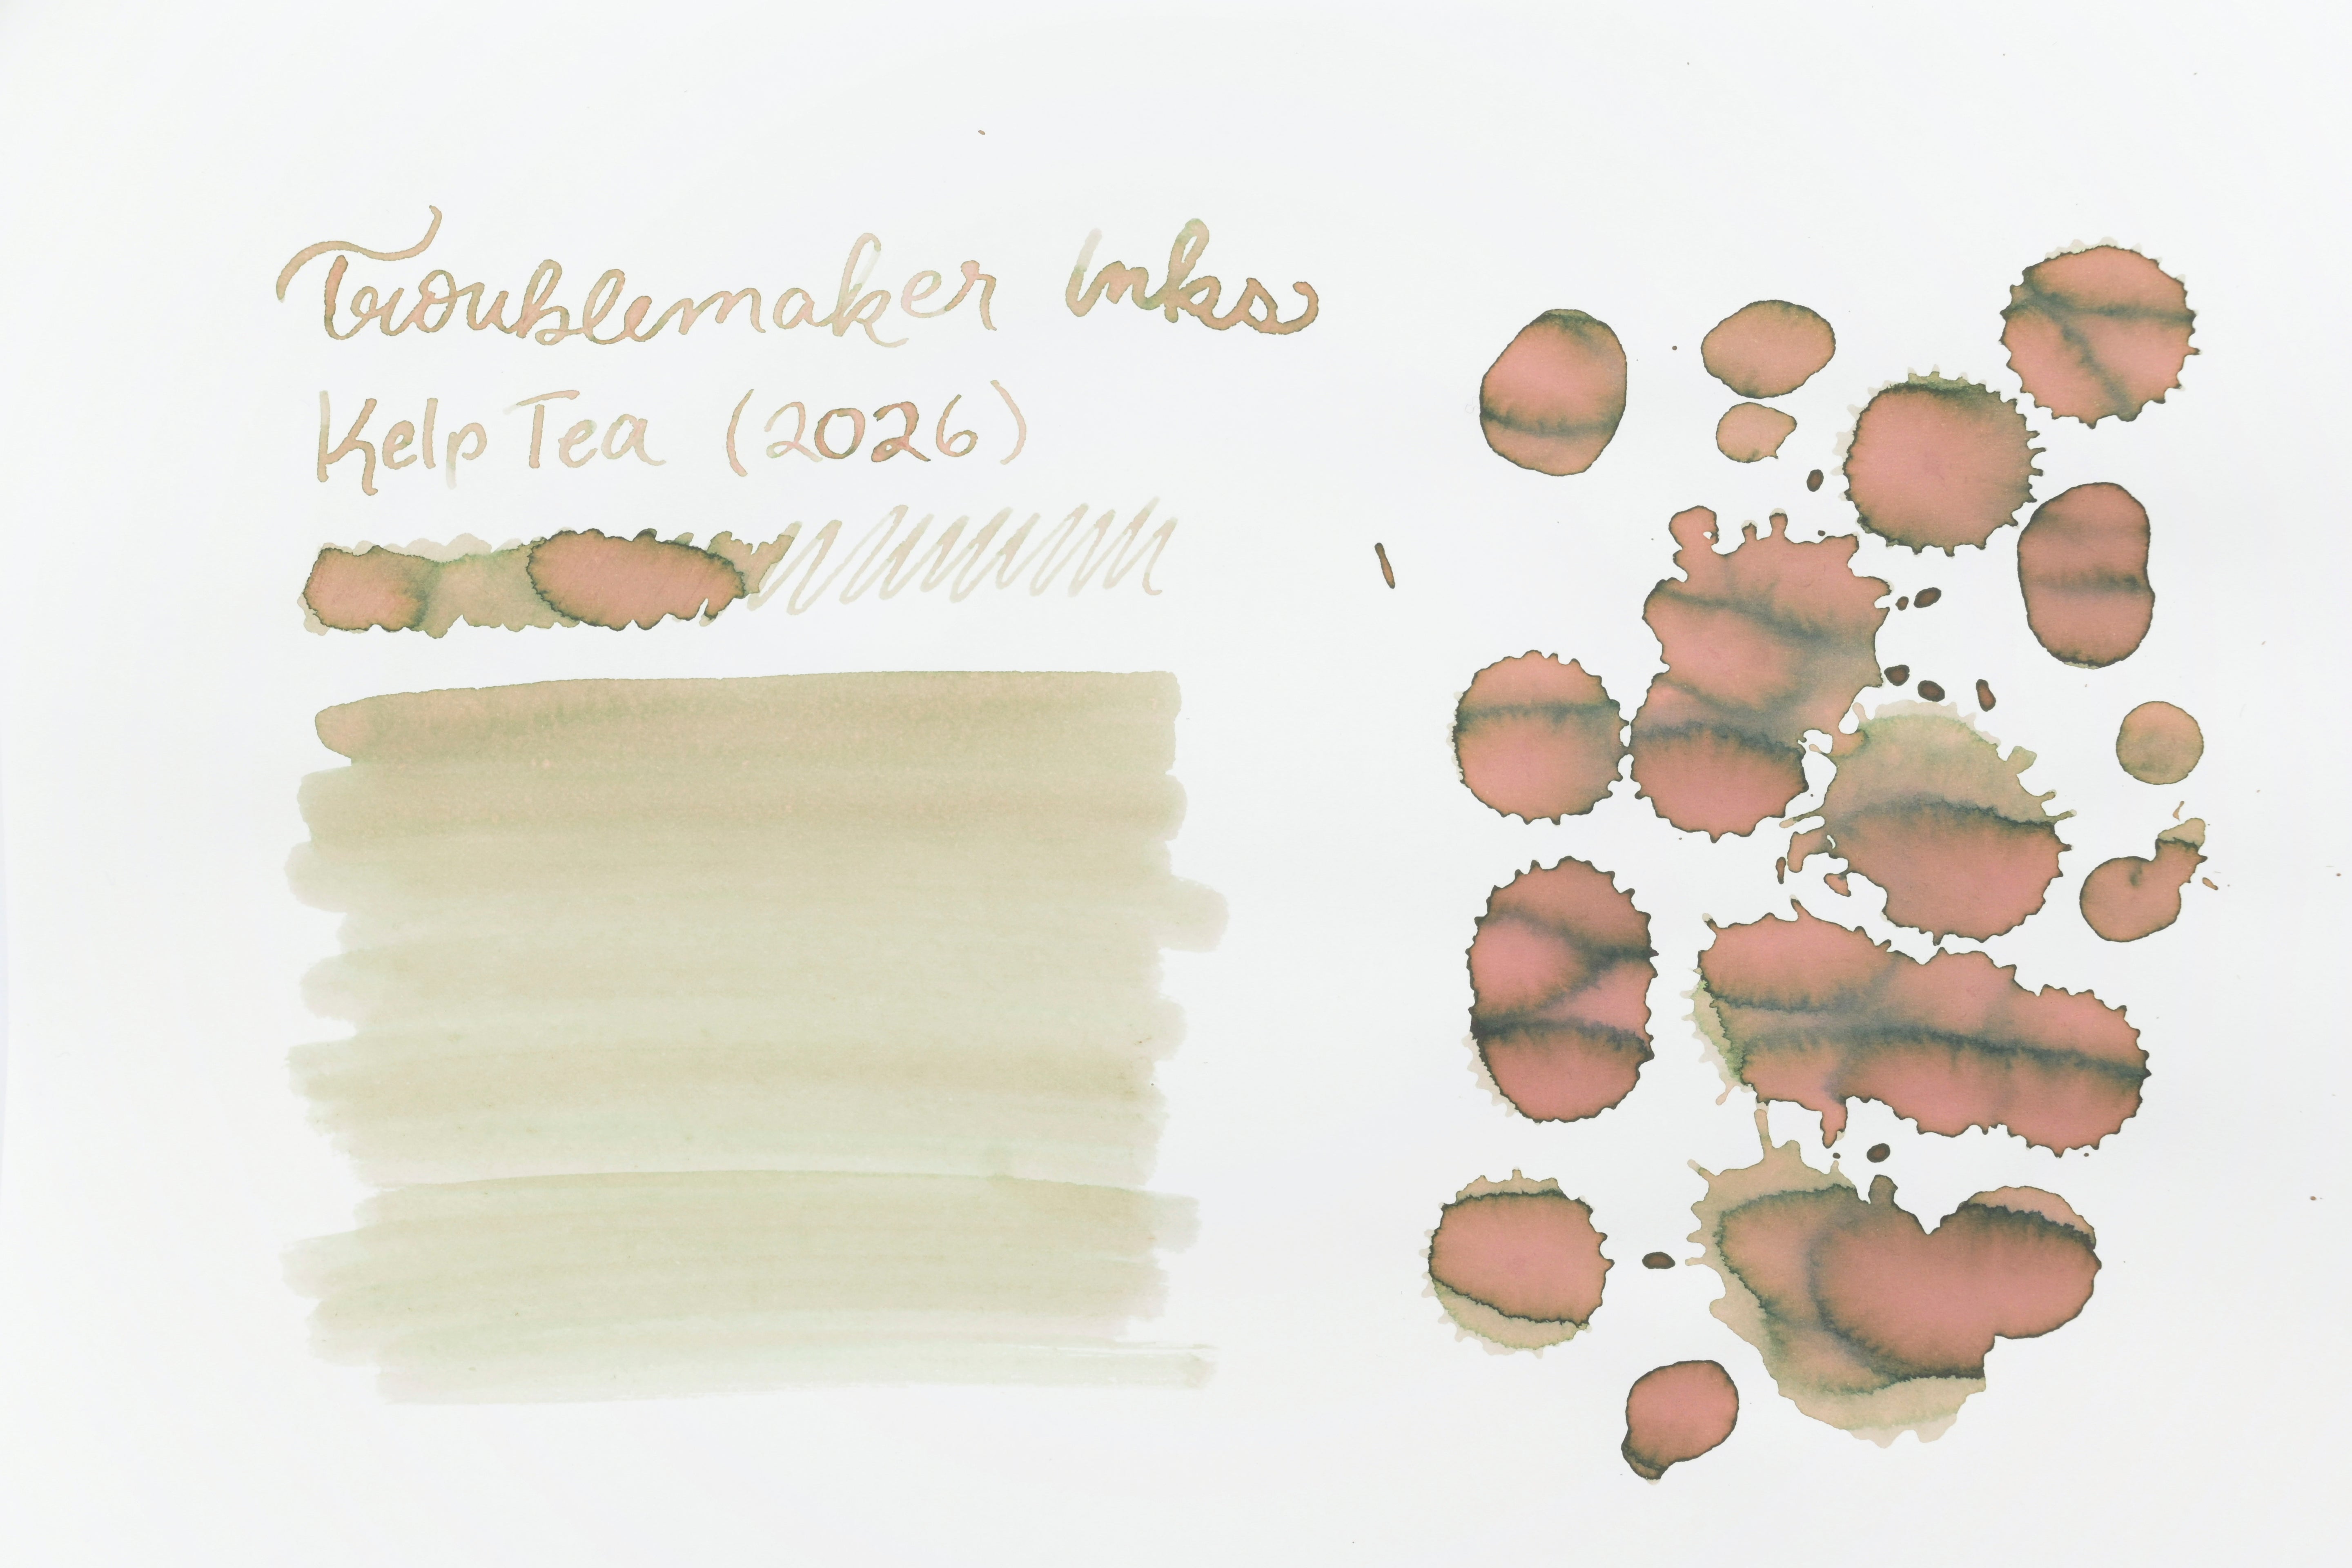 Troublemaker Inks
Kelp Tea (2026)